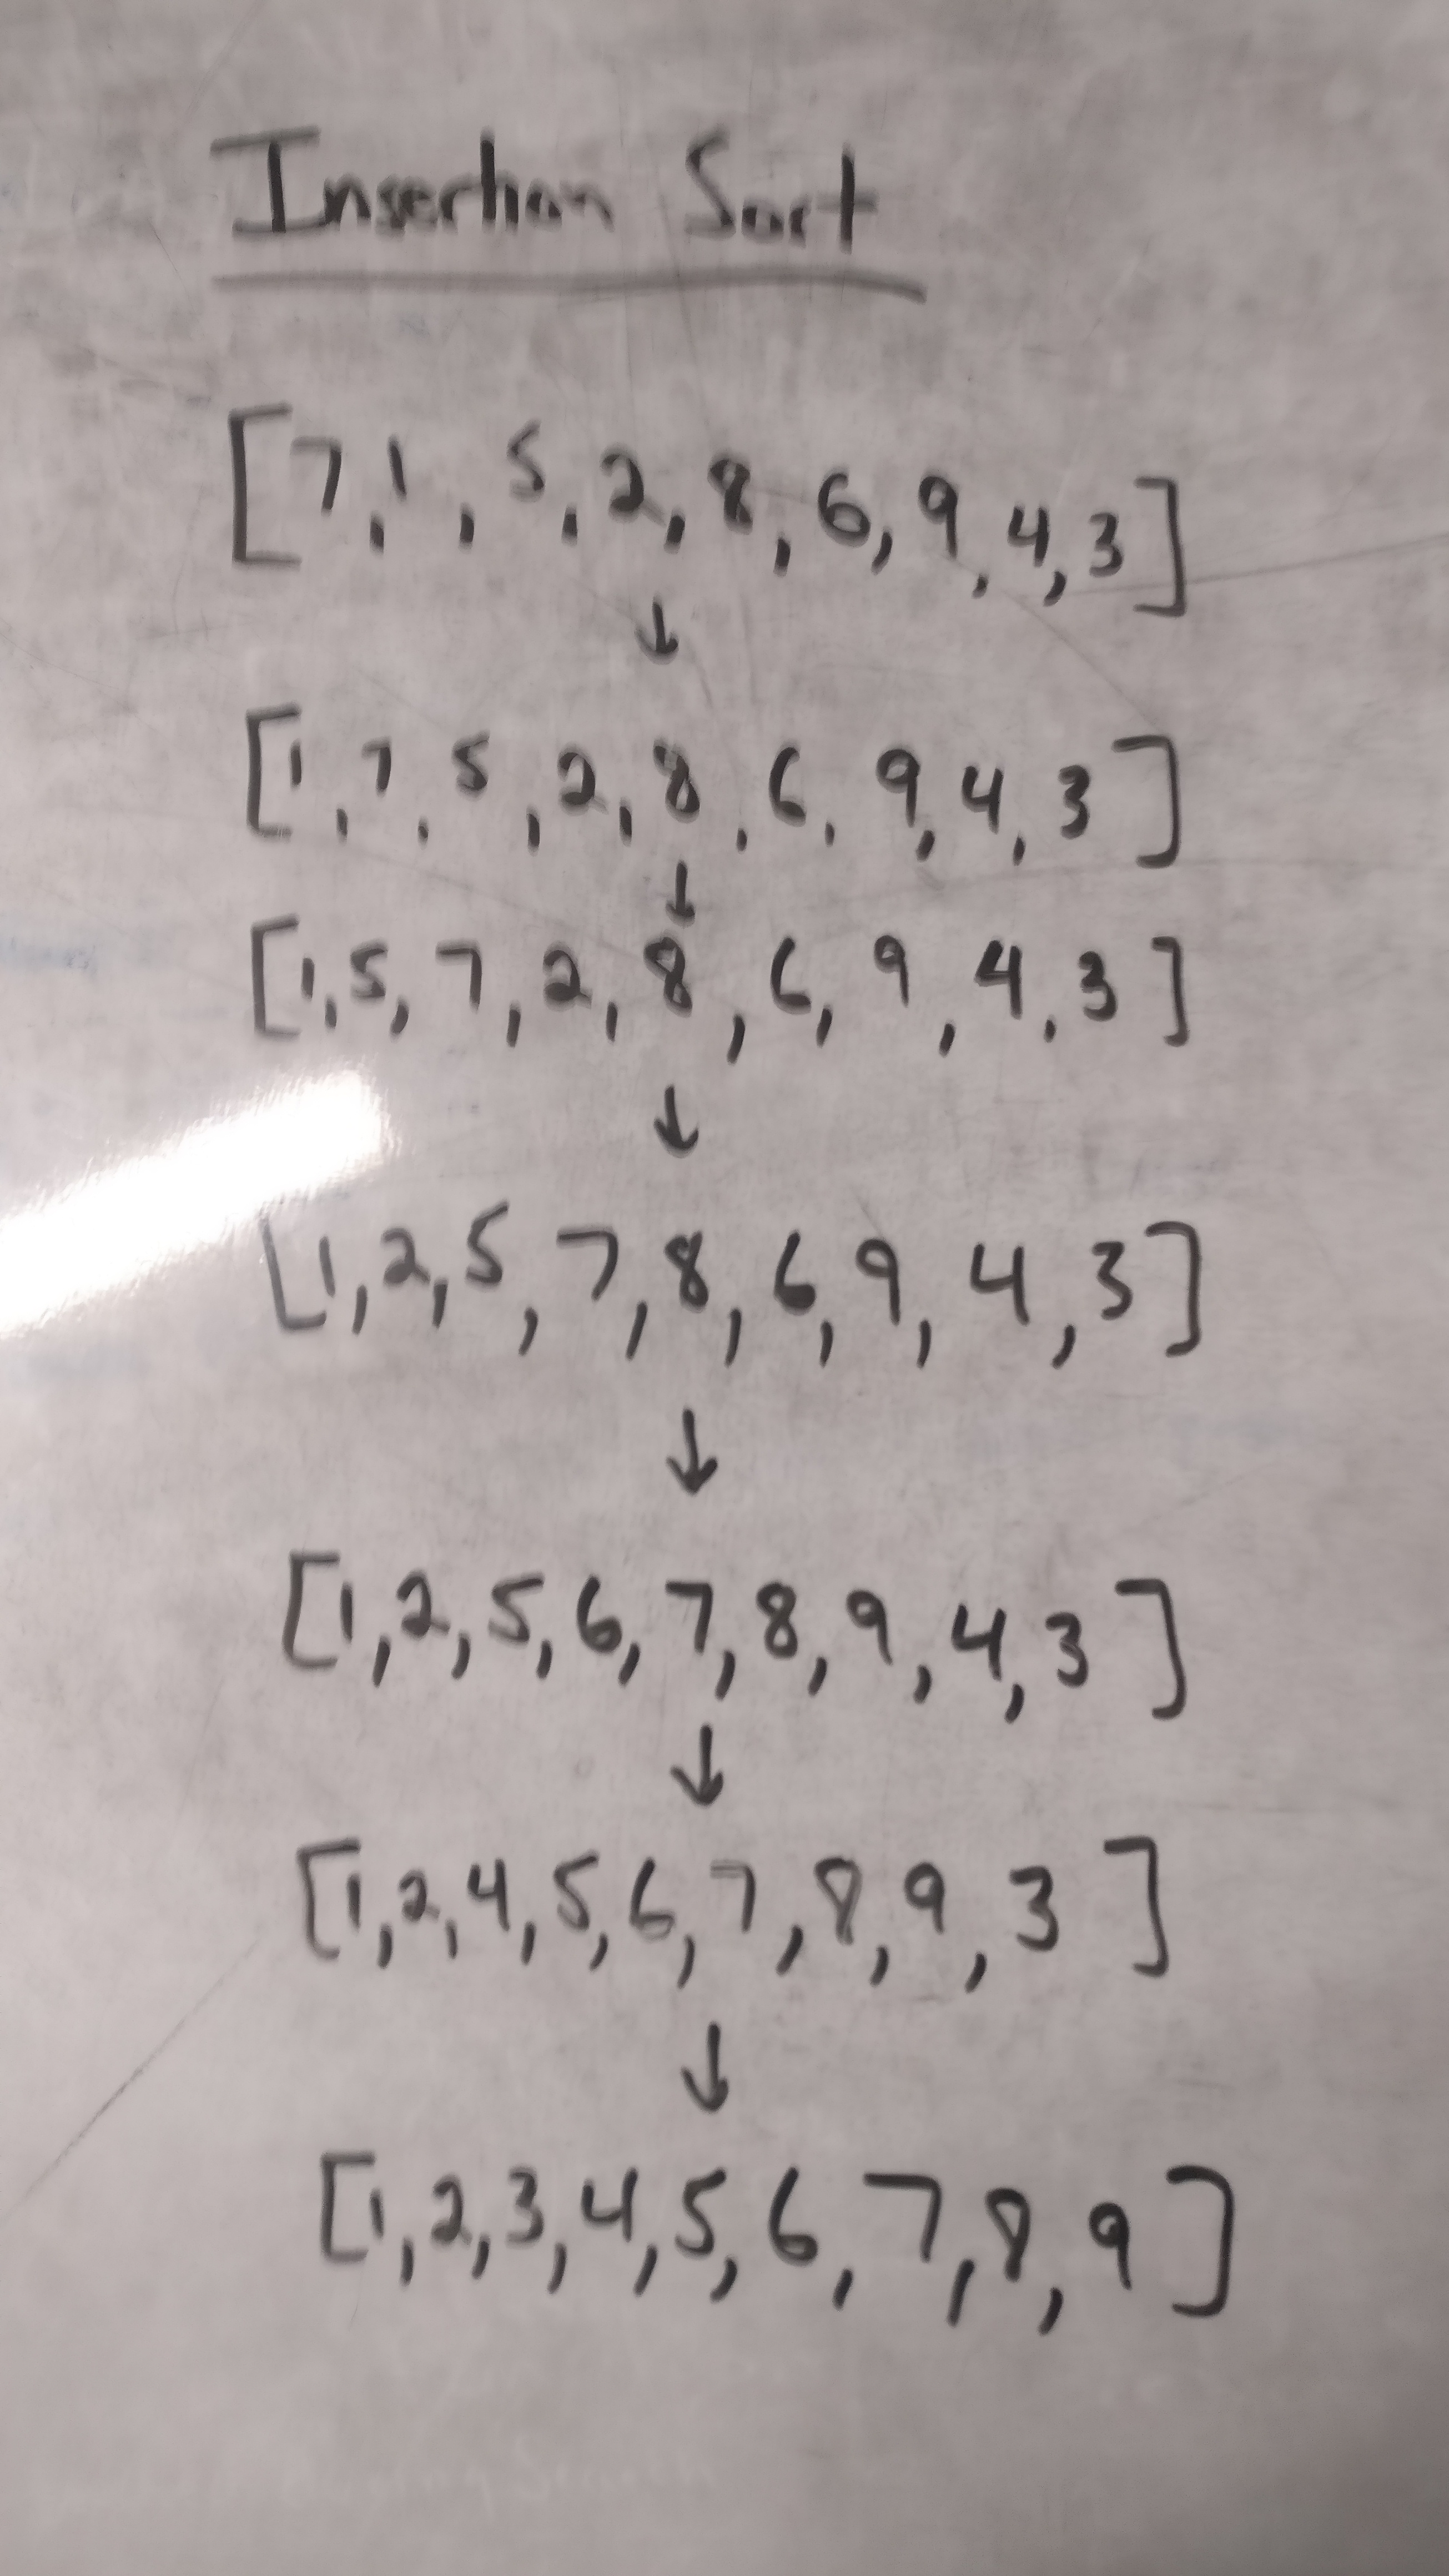 Insertion Sort
[7, 1, 5, 2, 8, 6, 9, 4, 3]
↓
[1, 7, 5, 2, 8, 6, 9, 4, 3]
↓
[1, 5, 7, 2, 8, 6, 9, 4, 3]
↓
[1, 2, 5, 7, 8, 6, 9, 4, 3]
↓
[1, 2, 5, 6, 7, 8, 9, 4, 3]
↓
[1, 2, 4, 5, 6, 7, 8, 9, 3]
↓
[1, 2, 3, 4, 5, 6, 7, 8, 9]